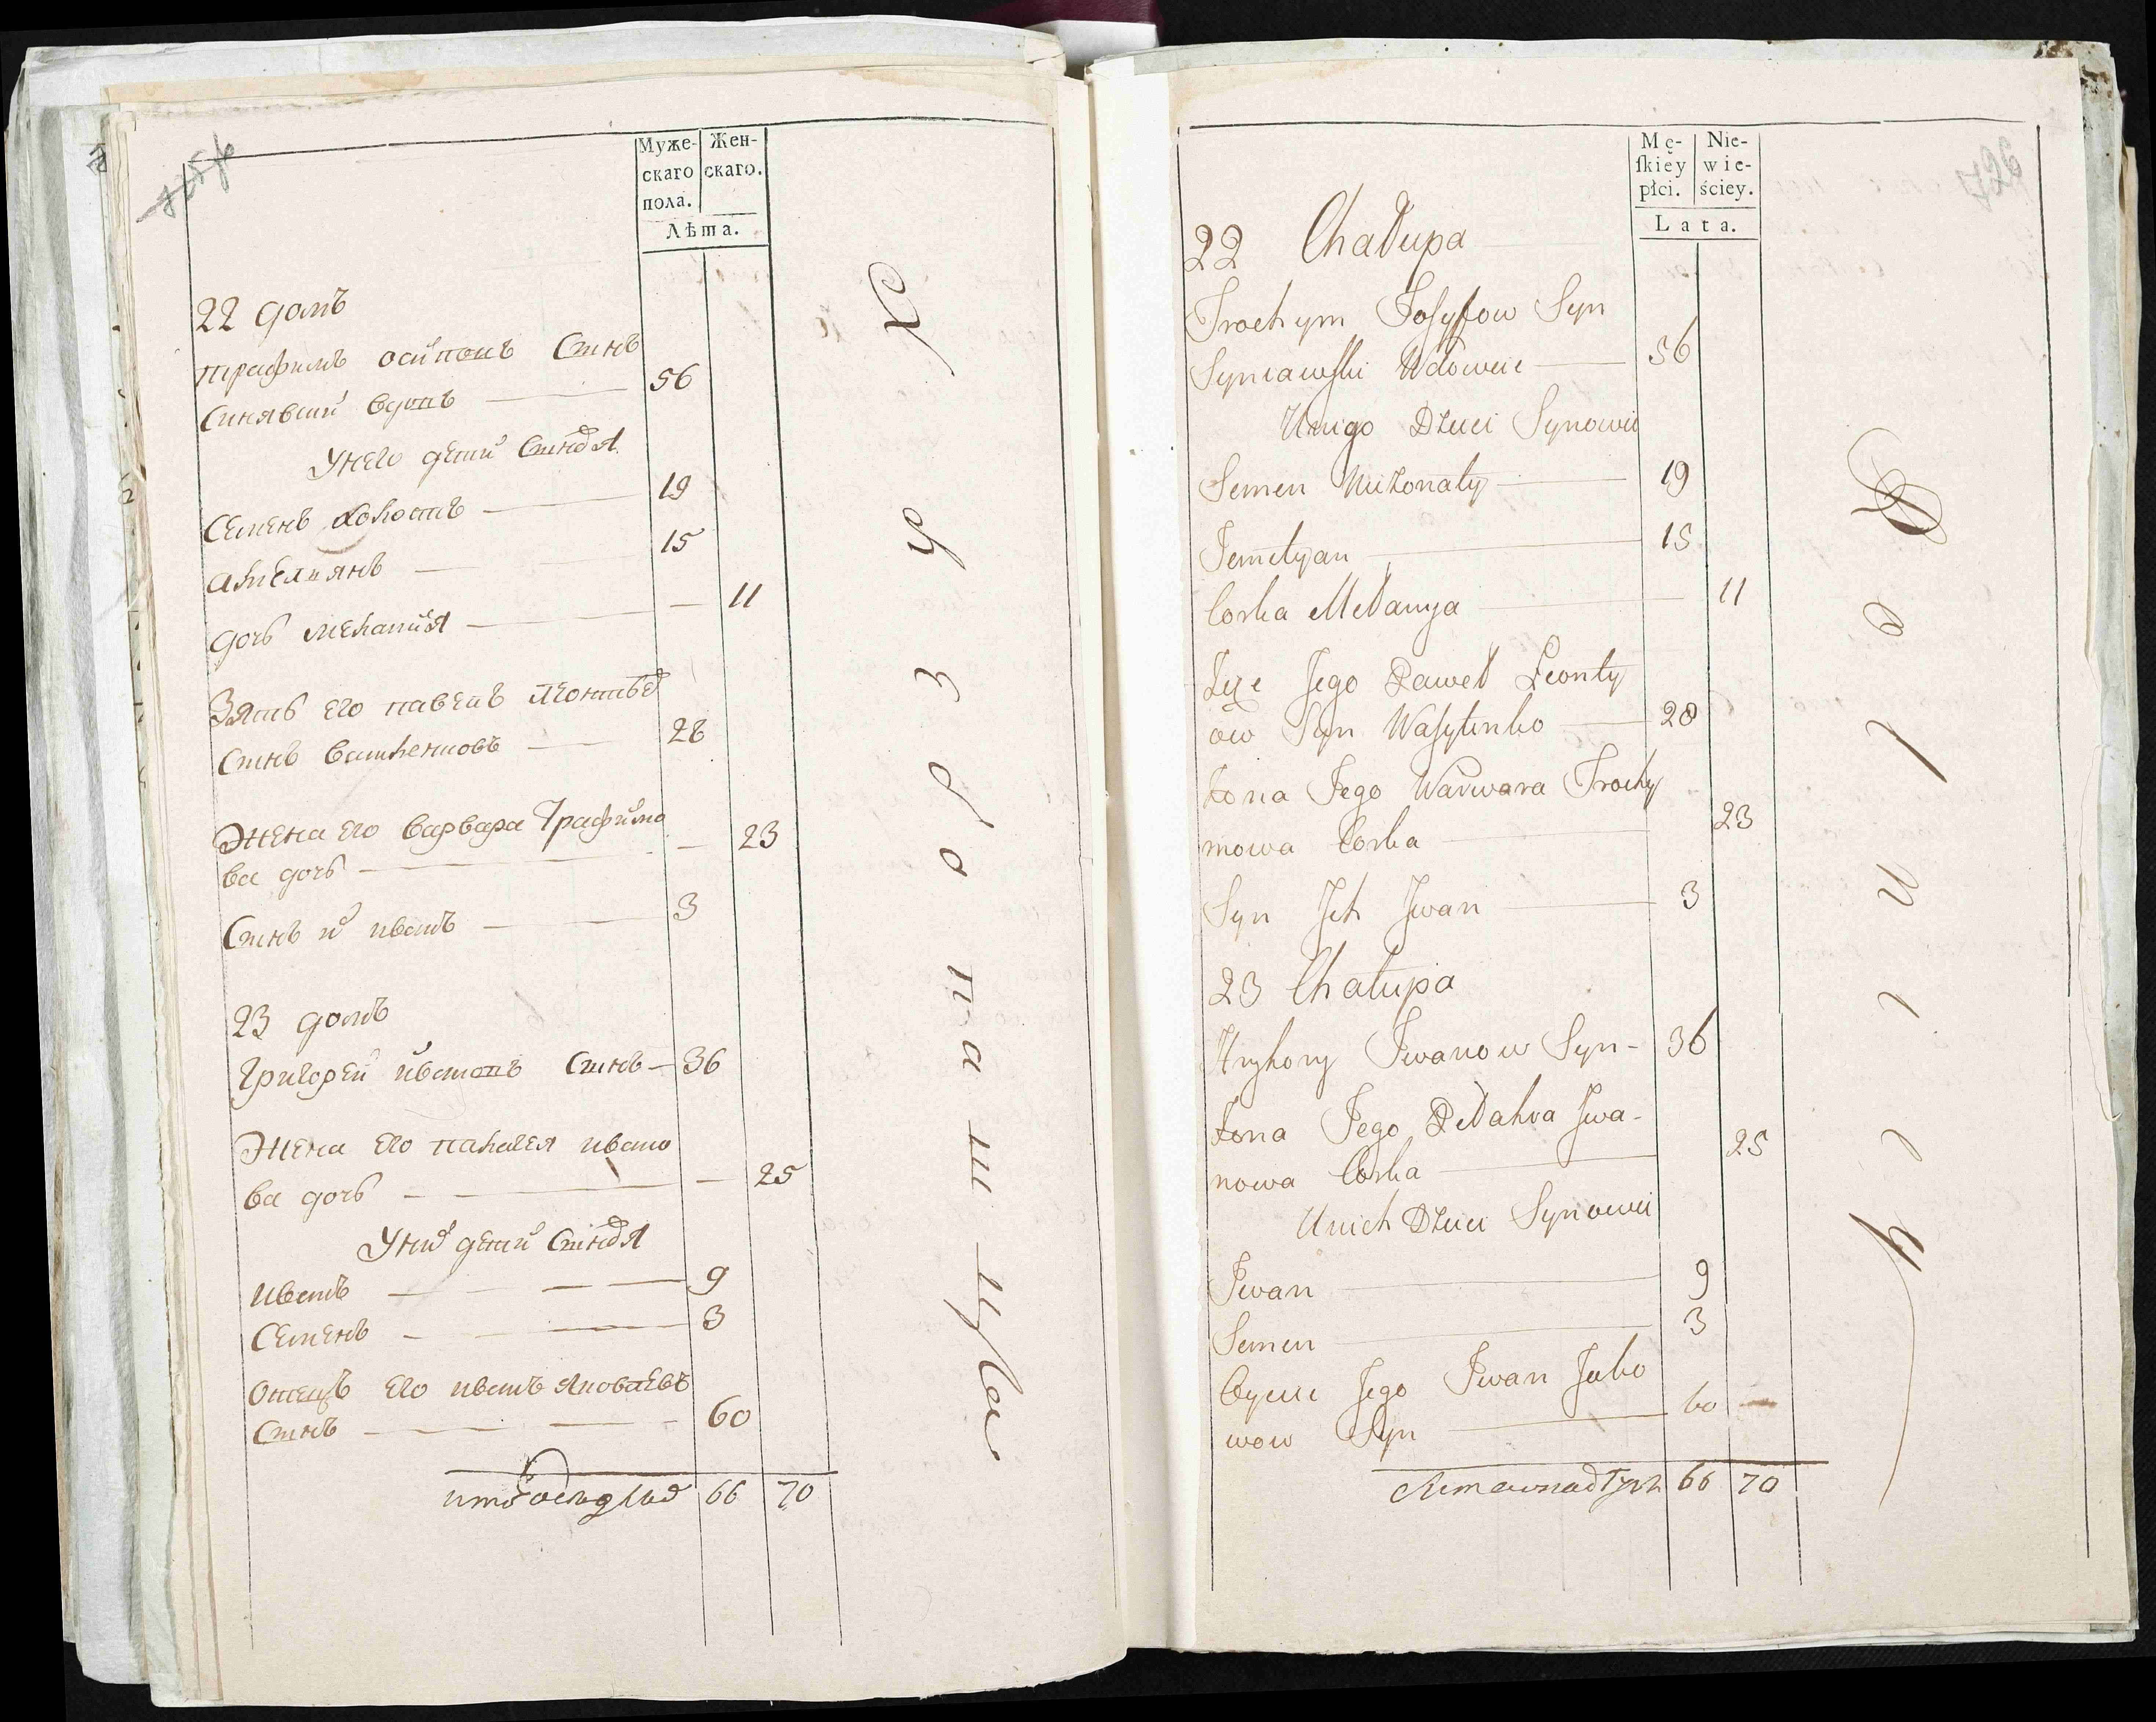 Муже-
скаго
пола.
Жен-
скаго.
Лѣта.
22 домъ
Трафимъ осиповъ Синъ
Синявский вдовъ — 56
У него детей Синовья
Семенъ холостъ — 19
амельянъ — 15
дочь мелания — 11
Зять его павелъ леонтьев
Синъ василенковъ — 28
Жена его варвара Трафимо
ва дочь — 23
Синъ их иванъ — 3
23 домъ
Григорей ивановъ Синъ — 36
Жена его палагея ивано
ва дочь — 25
У них детей Синовья
иванъ — 9
Семенъ — 3
Отецъ его иванъ яковлевъ
Синъ — 60
66 70
Mę-
ſkiey
płci.
Nie-
wie-
ściey.
Lata.
22 Chałupa
Trochym Josyfow Syn
Syniawski Wdowiec — 56
U niego Dzieci Synowie
Semen Nieżonaty — 19
Jemelyan — 15
Corka Mełanya — 11
Zięc Jego Paweł Leonty
ow Syn Wasylenko — 28
Żona Jego Warwara Trochy
mowa Corka — 23
Syn Ich Iwan — 3
23 Chałupa
Hryhory Iwanow Syn - 36
Żona Jego Pełahia Iwa-
nowa Corka — 25
U nich Dzieci Synowie
Iwan — 9
Semen — 3
Oyciec Jego Iwan Jako
wow Syn — 60
66 70